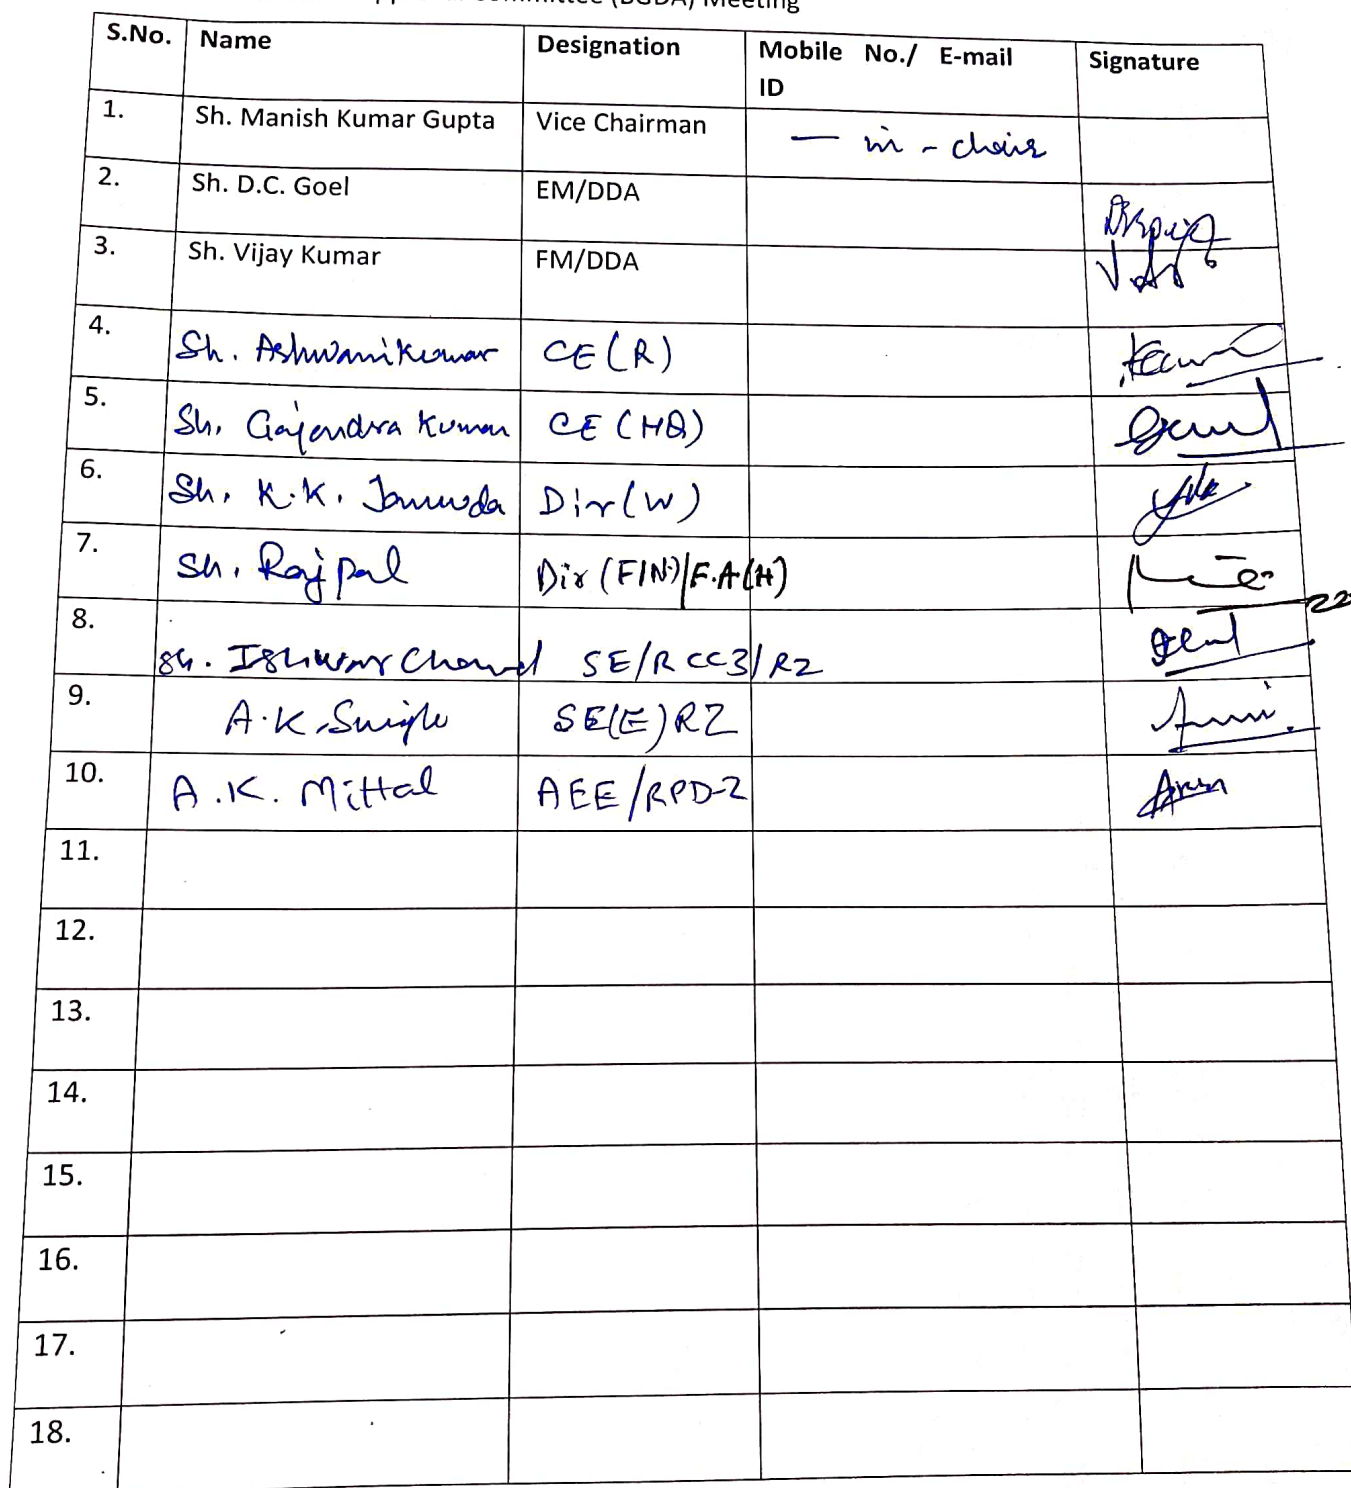 Committee (BGDA) Meeting
S.No. Name Designation Mobile No./ E-mail ID Signature
1. Sh. Manish Kumar Gupta Vice Chairman — in - chair
2. Sh. D.C. Goel EM/DDA
3. Sh. Vijay Kumar FM/DDA
4. Sh. Ashwani Kumar CE (R)
5. Sh. Gajendra Kumar CE (HQ)
6. Sh. K.K. Dir (W)
7. Sh. Rajpal Dir (FIN)/F.A(H)
8. Sh. Ishwar Chand SE/RCC3/RZ
9. A.K. SE(E)RZ
10. A.K. Mittal AEE/RPD-2
11.
12.
13.
14.
15.
16.
17.
18.